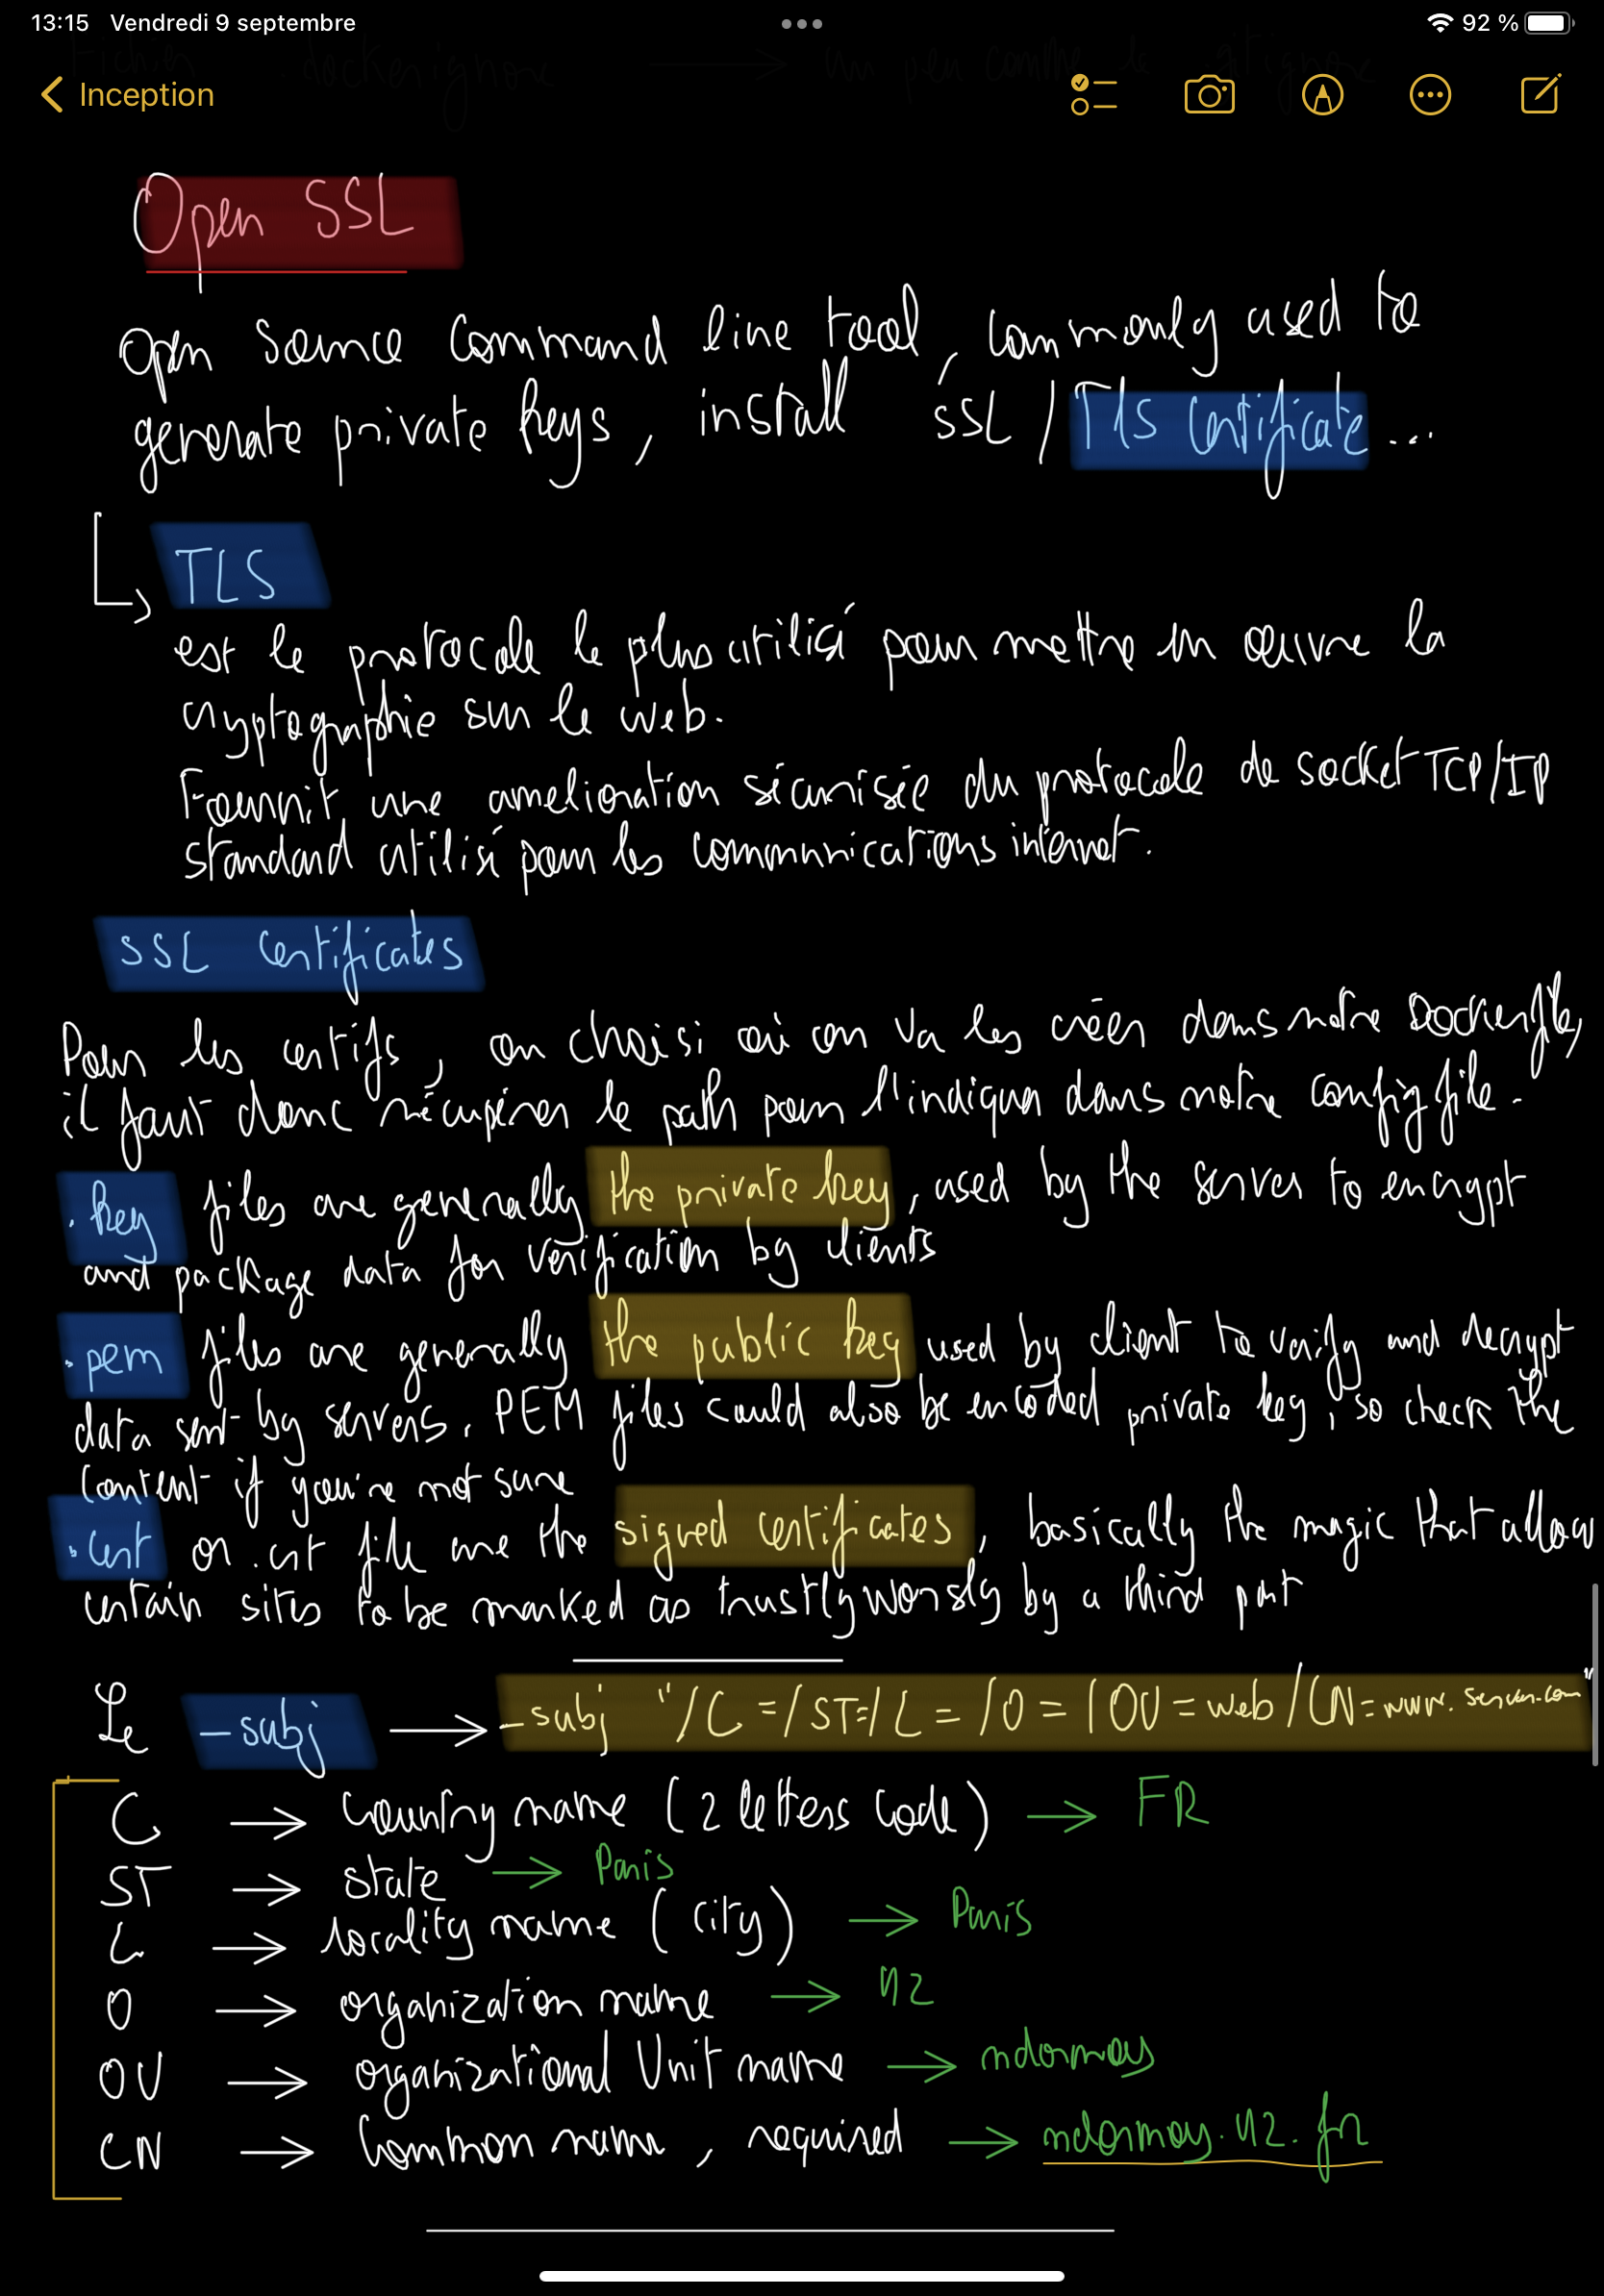 13:15 Vendredi 9 septembre
92 %
Fichier .dockerignore → un peu comme le .gitignore
Inception
Open SSL
Open Source Command line tool, commonly used to
generate private keys, install SSL / TLS Certificate ...
TLS
est le protocole le plus utilisé pour mettre en œuvre la
cryptographie sur le web.
Fournit une amelioration sécurisée du protocole de socket TCP/IP
standard utilisé pour les communications internet.
SSL Certificates
Pour les certifs, on choisi où on va les créer dans notre Dockerfile,
il faut donc récupérer le path pour l'indiquer dans notre config file.
.key files are generally the private key, used by the server to encrypt
and package data for verification by clients
.pem files are generally the public key used by client to verify and decrypt
data sent by servers. PEM files could also be encoded private key, so check the
content if you're not sure
.cert or .crt file are the signed certificates, basically the magic that allow
certain sites to be marked as trustlyworsly by a third part
Le -subj → -subj "/C =/ST=/L = /O = /OU = web /CN= www.server.com"
C → Country name (2 letters code) → FR
ST → state → Paris
L → locality name (city) → Paris
O → organization name → 42
OU → organizational Unit name → ndormoy
CN → Common name, required → ndormoy.42.fr